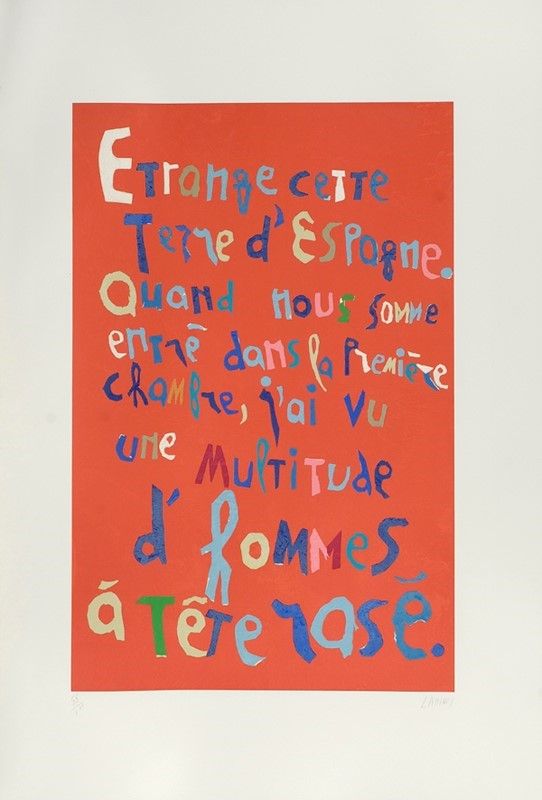 Etrange cette
Terre d'Espagne.
Quand nous somme
entré dans la Première
chambre, j'ai vu
une Multitude
d'hommes
á Tête rasé.